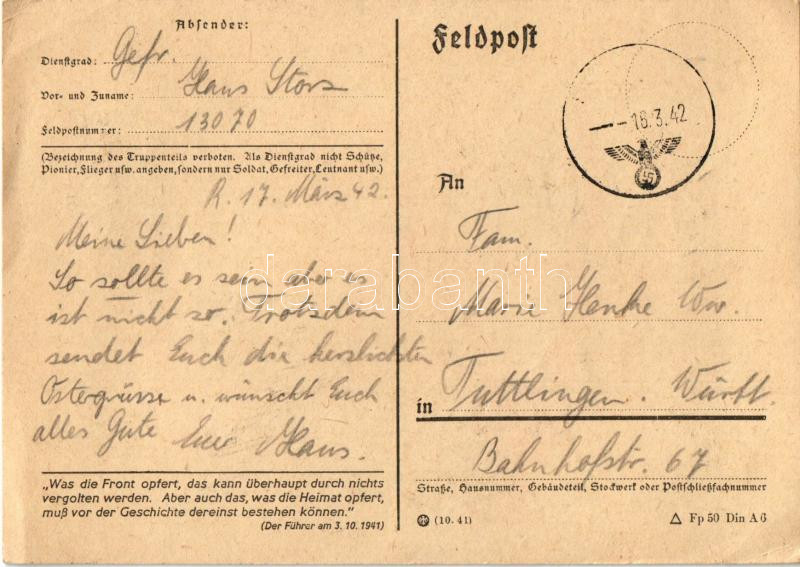 Absender:
Dienstgrad: Gefr.
Vor- und Zuname: Hans Storz
Feldpostnummer: 13070
(Bezeichnung des Truppenteils verboten. Als Dienstgrad nicht Schütze,
Pionier, Flieger usw. angeben, sondern nur Soldat, Gefreiter, Leutnant usw.)
R. 17. März 42.
Meine Lieben!
So sollte es sein aber es
ist nicht so. Trotzdem
sendet Euch die herzlichsten
Ostergrüsse u. wünscht Euch
alles Gute Euer Hans.
„Was die Front opfert, das kann überhaupt durch nichts
vergolten werden. Aber auch das, was die Heimat opfert,
muß vor der Geschichte dereinst bestehen können.“
(Der Führer am 3. 10. 1941)
Feldpost
18.3.42
An
Fam.
Marie Henke Ww.
in Tuttlingen. Württ.
Bahnhofstr. 67
Straße, Hausnummer, Gebäudeteil, Stockwerk oder Postschließfachnummer
(10. 41)
Fp 50 Din A 6
darabanth